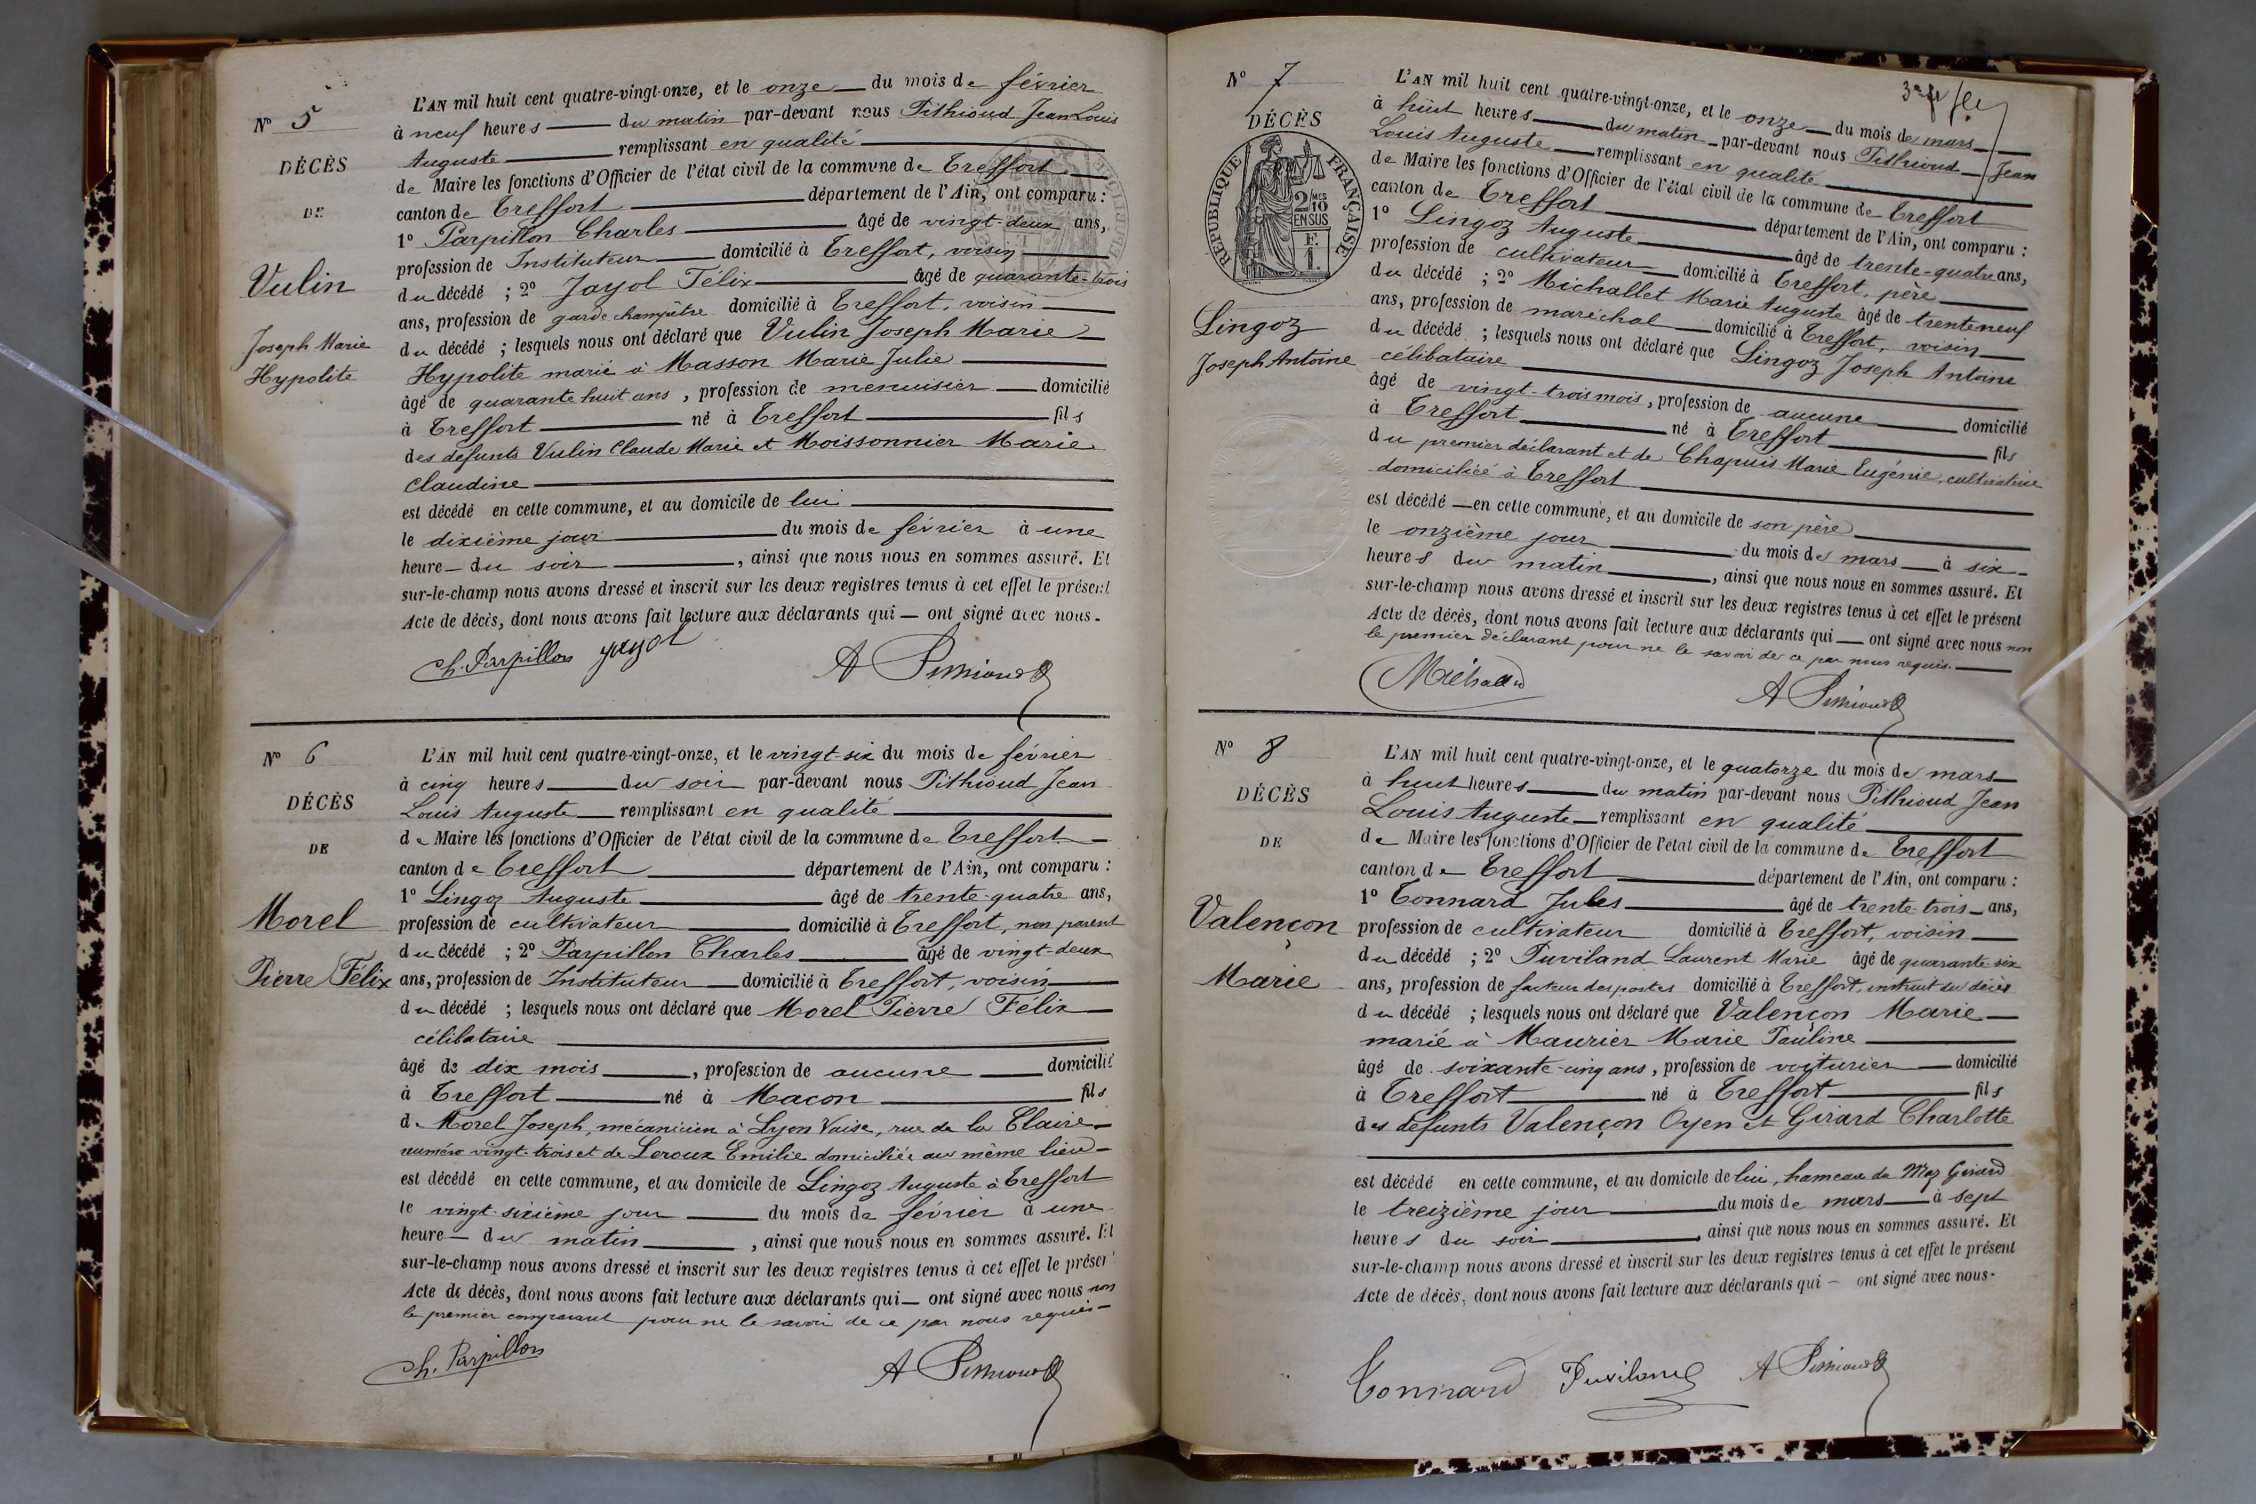 N° 5
DÉCÈS
DE
Vulin
Joseph Marie
Hypolite
L'AN mil huit cent quatre-vingt-onze, et le onze du mois de février
à neuf heures du matin par-devant nous Pithioud Jean Louis
Auguste remplissant en qualité
de Maire les fonctions d'Officier de l'état civil de la commune de Treffort
canton de Treffort département de l'Ain, ont comparu :
1° Parpillon Charles âgé de vingt-deux ans,
profession de Instituteur domicilié à Treffort, voisin
du décédé ; 2° Jayol Félix âgé de quarante-trois
ans, profession de garde champêtre domicilié à Treffort, voisin
du décédé ; lesquels nous ont déclaré que Vulin Joseph Marie
Hypolite marié à Masson Marie Julie
âgé de quarante huit ans, profession de menuisier domicilié
à Treffort né à Treffort fils
des défunts Vulin Claude Marie et Moissonnier Marie
Claudine
est décédé en cette commune, et au domicile de lui
le dixième jour du mois de février à une
heure du soir, ainsi que nous nous en sommes assuré. Et
sur-le-champ nous avons dressé et inscrit sur les deux registres tenus à cet effet le présent
Acte de décès, dont nous avons fait lecture aux déclarants qui — ont signé avec nous.
Ch. Parpillon Jayol A Pithioud
N° 6
DÉCÈS
DE
Morel
Pierre Félix
L'AN mil huit cent quatre-vingt-onze, et le vingt-six du mois de février
à cinq heures du soir par-devant nous Pithioud Jean
Louis Auguste remplissant en qualité
de Maire les fonctions d'Officier de l'état civil de la commune de Treffort
canton de Treffort département de l'Ain, ont comparu :
1° Lingoz Auguste âgé de trente-quatre ans,
profession de cultivateur domicilié à Treffort, non parent
du décédé ; 2° Parpillon Charles âgé de vingt-deux
ans, profession de Instituteur domicilié à Treffort, voisin
du décédé ; lesquels nous ont déclaré que Morel Pierre Félix
célibataire
âgé de dix mois, profession de aucune domicilié
à Treffort né à Macon fils
de Morel Joseph, mécanicien à Lyon Vaise, rue de la Claire
numéro vingt-trois et de Leroux Emilie domiciliée au même lieu
est décédé en cette commune, et au domicile de Lingoz Auguste à Treffort
le vingt-sixième jour du mois de février à une
heure du matin, ainsi que nous nous en sommes assuré. Et
sur-le-champ nous avons dressé et inscrit sur les deux registres tenus à cet effet le présent
Acte de décès, dont nous avons fait lecture aux déclarants qui — ont signé avec nous non
le premier comparant pour ne le savoir de ce par nous requis
Ch. Parpillon A Pithioud
N° 7
DÉCÈS
RÉPUBLIQUE FRANÇAISE
2/10 EN SUS
Lingoz
Joseph Antoine
L'AN mil huit cent quatre-vingt-onze, et le onze du mois de mars
à huit heures du matin par-devant nous Pithioud Jean
Louis Auguste remplissant en qualité
de Maire les fonctions d'Officier de l'état civil de la commune de Treffort
canton de Treffort département de l'Ain, ont comparu :
1° Lingoz Auguste âgé de trente-quatre ans,
profession de cultivateur domicilié à Treffort, père
du décédé ; 2° Michallet Marie Auguste âgé de trente neuf
ans, profession de maréchal domicilié à Treffort, voisin
du décédé ; lesquels nous ont déclaré que Lingoz Joseph Antoine
célibataire
âgé de vingt-trois mois, profession de aucune domicilié
à Treffort né à Treffort fils
du premier déclarant et de Chapuis Marie Eugénie, cultivatrice
domiciliée à Treffort
est décédé en cette commune, et au domicile de son père
le onzième jour du mois de mars à six
heures du matin, ainsi que nous nous en sommes assuré. Et
sur-le-champ nous avons dressé et inscrit sur les deux registres tenus à cet effet le présent
Acte de décès, dont nous avons fait lecture aux déclarants qui — ont signé avec nous non
le premier déclarant pour ne le savoir de ce par nous requis.
A Pithioud
N° 8
DÉCÈS
DE
Valençon
Marie
L'AN mil huit cent quatre-vingt-onze, et le quatorze du mois de mars
à huit heures du matin par-devant nous Pithioud Jean
Louis Auguste remplissant en qualité
de Maire les fonctions d'Officier de l'état civil de la commune de Treffort
canton de Treffort département de l'Ain, ont comparu :
1° Tonnard Jules âgé de trente-trois ans,
profession de cultivateur domicilié à Treffort, voisin
du décédé ; 2° Puviland Laurent Marie âgé de quarante-six
ans, profession de facteur des postes domicilié à Treffort, instruit du décès
du décédé ; lesquels nous ont déclaré que Valençon Marie
marié à Maurier Marie Pauline
âgé de soixante-cinq ans, profession de voiturier domicilié
à Treffort né à Treffort fils
des défunts Valençon Oyen et Girard Charlotte
est décédé en cette commune, et au domicile de lui, hameau de Maz Girard
le treizième jour du mois de mars à sept
heures du soir, ainsi que nous nous en sommes assuré. Et
sur-le-champ nous avons dressé et inscrit sur les deux registres tenus à cet effet le présent
Acte de décès, dont nous avons fait lecture aux déclarants qui — ont signé avec nous.
Tonnard Puviland A Pithioud